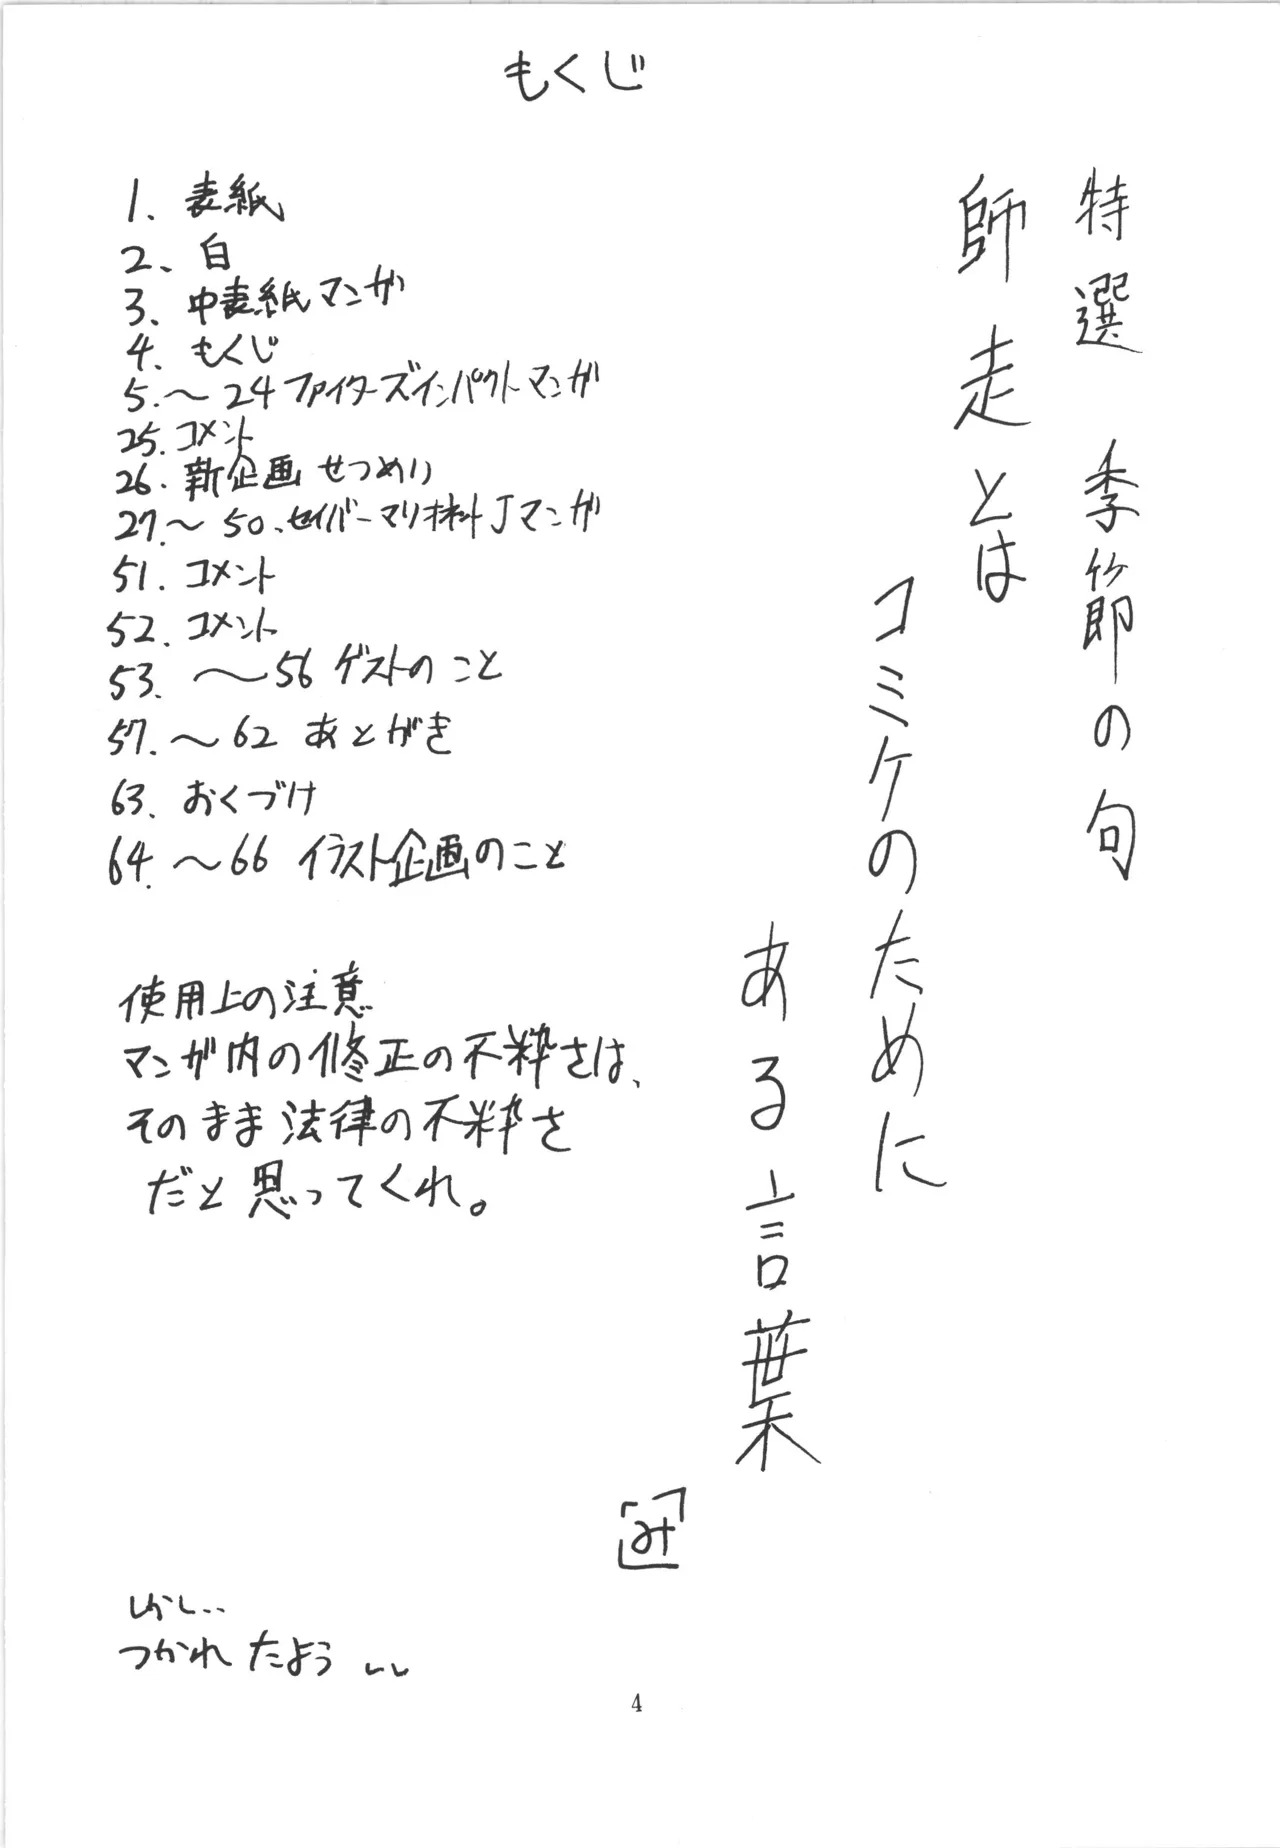 もくじ
1. 表紙
2. 白
3. 中表紙マンガ
4. もくじ
5.〜24 ファイターズインパクトマンガ
25. コメント
26. 新企画 せつめい
27.〜50. セイバーマリオネットJマンガ
51. コメント
52. コメント
53. 〜56 ゲストのこと
57. 〜62 あとがき
63. おくづけ
64. 〜66 イラスト企画のこと
使用上の注意
マンガ内の修正の不粋さは、
そのまま法律の不粋さ
だと思ってくれ。
特選 季節の句
師走とは
コミケのために
ある言葉
「み」
しかし..
つかれたよう
4